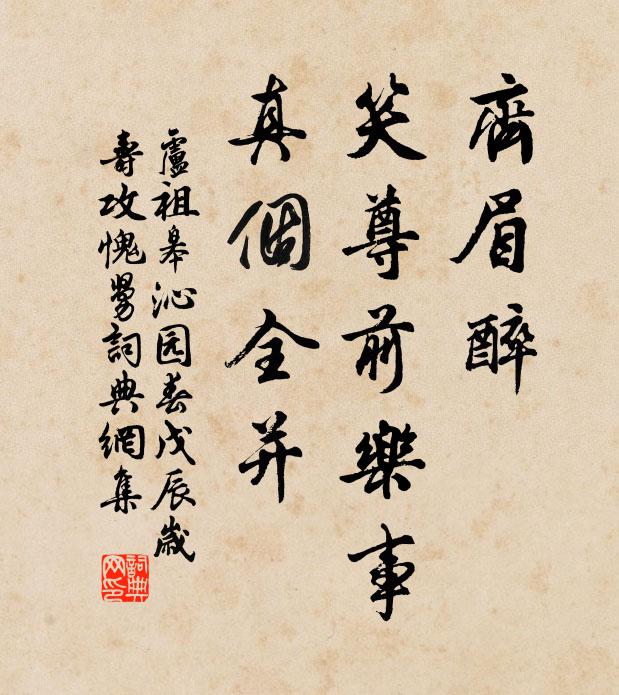 齊眉醉
笑尊前樂事
真個全并
盧祖皋沁园春戊辰歲
壽攻愧舅詞典網集
詞典
网印